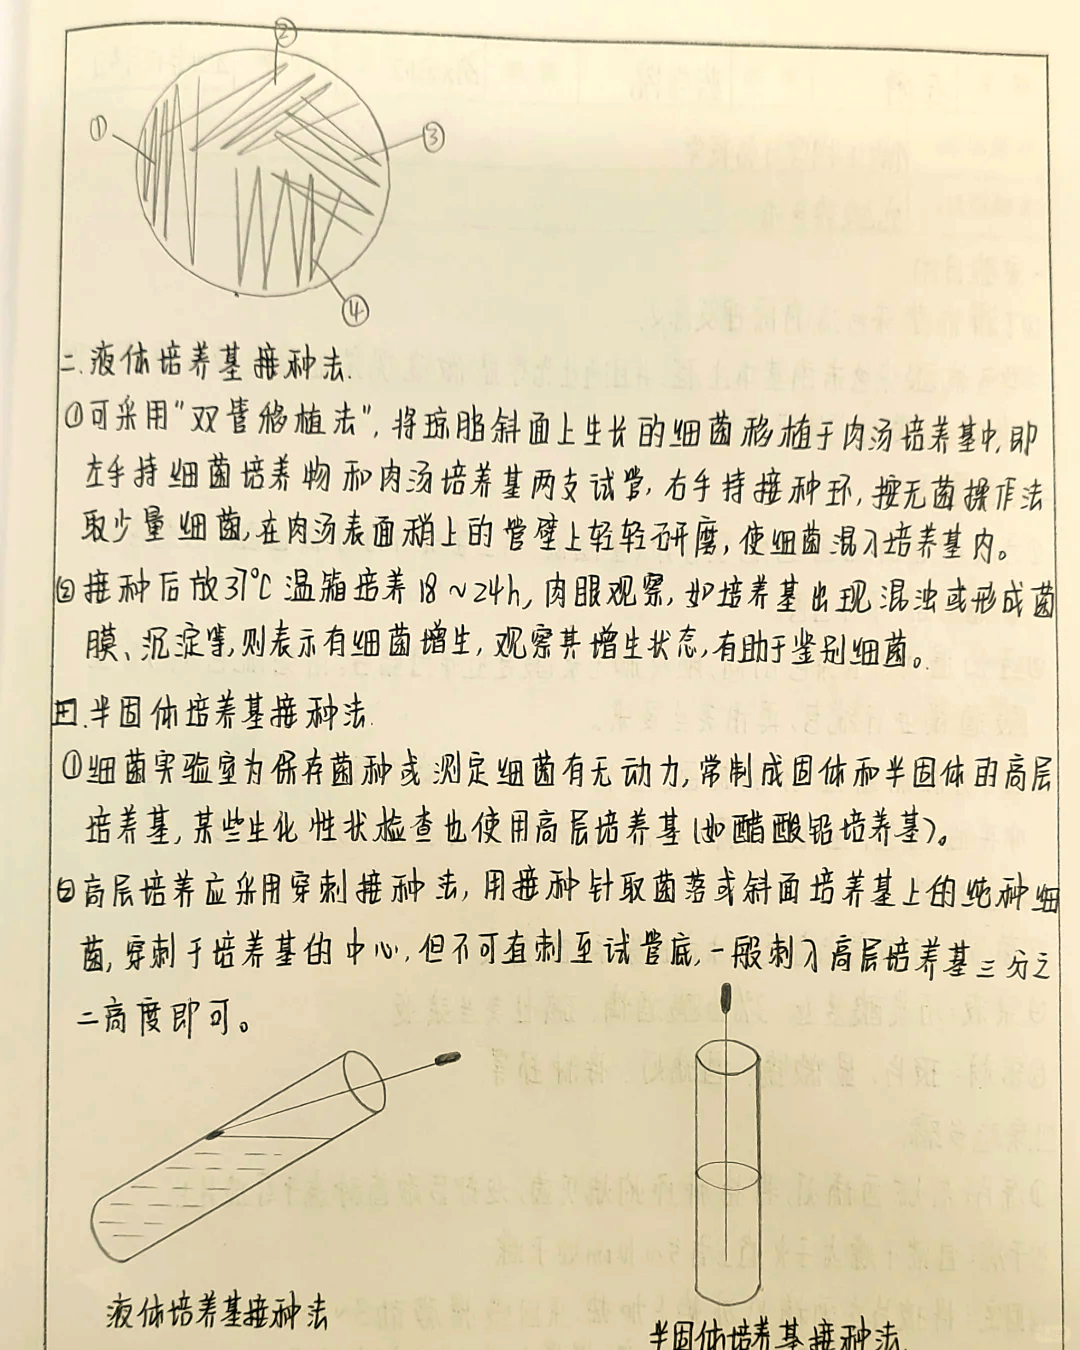 ②
①
③
④
二.液体培养基接种法.
①可采用"双管移植法",将琼脂斜面上生长的细菌移植于肉汤培养基中,即
左手持细菌培养物和肉汤培养基两支试管,右手持接种环,按无菌操作法
取少量细菌,在肉汤表面稍上的管壁上轻轻研磨,使细菌混入培养基内。
②接种后放37℃温箱培养18~24h,肉眼观察,如培养基出现混浊或形成菌
膜、沉淀等,则表示有细菌增生,观察其增生状态,有助于鉴别细菌。
半固体培养基接种法.
①细菌实验室为保存菌种或测定细菌有无动力,常制成固体和半固体的高层
培养基,某些生化性状检查也使用高层培养基(如醋酸铅培养基)。
②高层培养应采用穿刺接种法,用接种针取菌落或斜面培养基上的纯种细
菌,穿刺于培养基的中心,但不可直刺至试管底,一般刺入高层培养基三分之
二高度即可。
液体培养基接种法
半固体培养基接种法